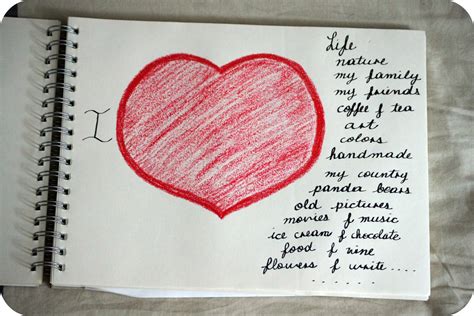 I
Life
nature
my family
my friends
coffee & tea
art
colors
handmade
my country
panda bears
old pictures
movies & music
ice cream & chocolate
food & wine
flowers & write.....
......